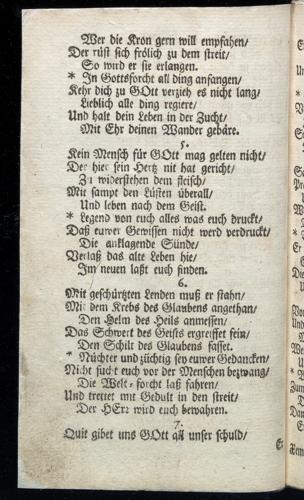 Wer die Kron gern will empfahen/
Der rüst sich frölich zu dem streit/
So wird er sie erlangen.
* In Gottsforcht all ding anfangen/
Kehr dich zu GOtt verzieh es nicht lang/
Lieblich alle ding regiere/
Und halt dein Leben in der Zucht/
Mit Ehr deinen Wander gebäre.
5.
Kein Mensch für GOtt mag gelten nicht/
Der hier sein Hertz nit hat gericht/
Zu widerstehen dem fleisch/
Mit sampt den Lüsten überall/
Und leben nach dem Geist.
* Legend von euch alles was euch druckt/
Daß euwer Gewissen nicht werd verdruckt/
Die anklagende Sünde/
Verlaßt das alte Leben hie/
Im neuen laßt euch finden.
6.
Mit geschürtzten Lenden muß er stahn/
Mit dem Krebs des Glaubens angethan/
Den Helm des Heils anmessen/
Das Schwert des Geists ergreiffet fein/
Den Schilt des Glaubens fasset.
* Nüchter und züchtig sey euwer Gedancken/
Nicht sucht euch vor der Menschen bezwang/
Die Welt forcht laß fahren/
Und trettet mit Gedult in den streit/
Der HErr wird euch bewahren.
7.
Quit gibet uns GOtt all unser schuld/